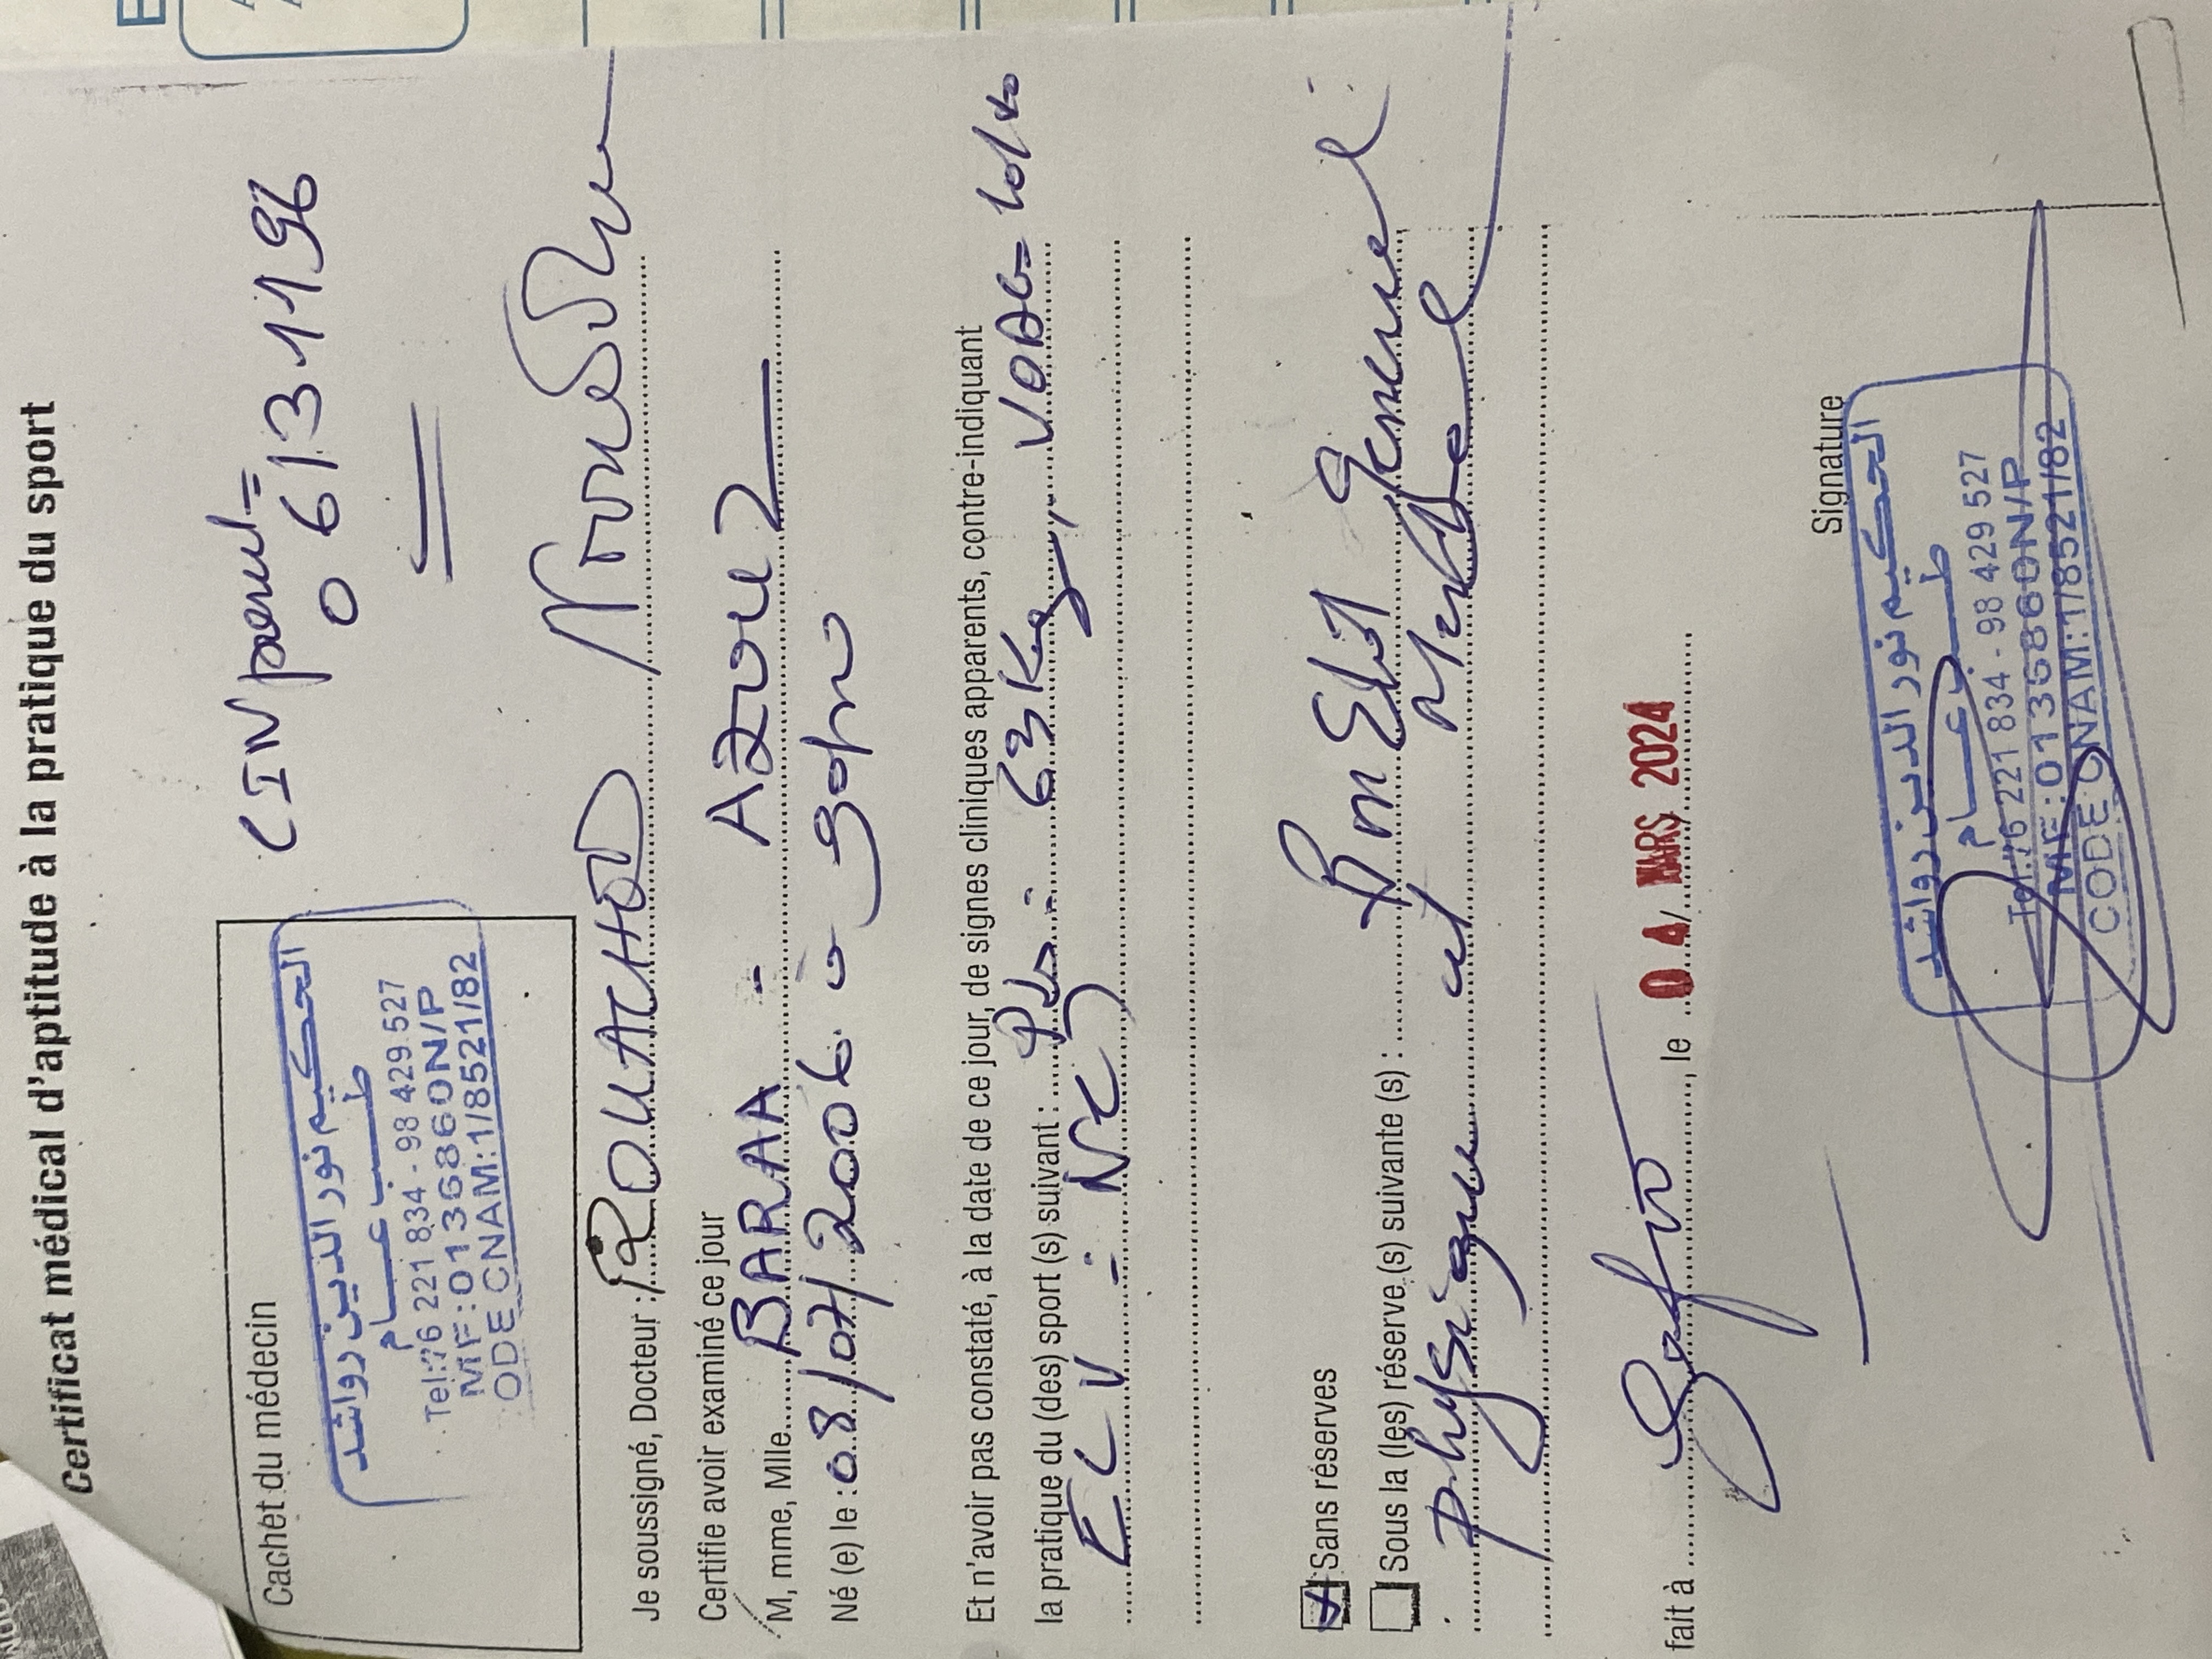 Certificat médical d'aptitude à la pratique du sport
CIN parent =
06134196
Cachet du médecin
الحكيم نور الدين رواشد
طب عام
Tel:76 221 834 - 98 429 527
MF:0136860N/P
ODE CNAM:1/8521/82
Je soussigné, Docteur : ROUACHED
Certifie avoir examiné ce jour
M, mme, Mlle BARAA - AZOUZ
Né (e) le : 08/07/2006
Et n'avoir pas constaté, à la date de ce jour, de signes cliniques apparents, contre-indiquant
la pratique du (des) sport (s) suivant : Pds = 63 Kg
Sans réserves
Sous la (les) réserve (s) suivante (s) : Bon Etat General
physique et
fait à , le 04 MARS 2024
Signature
الحكيم نور الدين رواشد
طب عام
Tel:76 221 834 - 98 429 527
MF:0136860N/P
CODE CNAM:1/8521/82